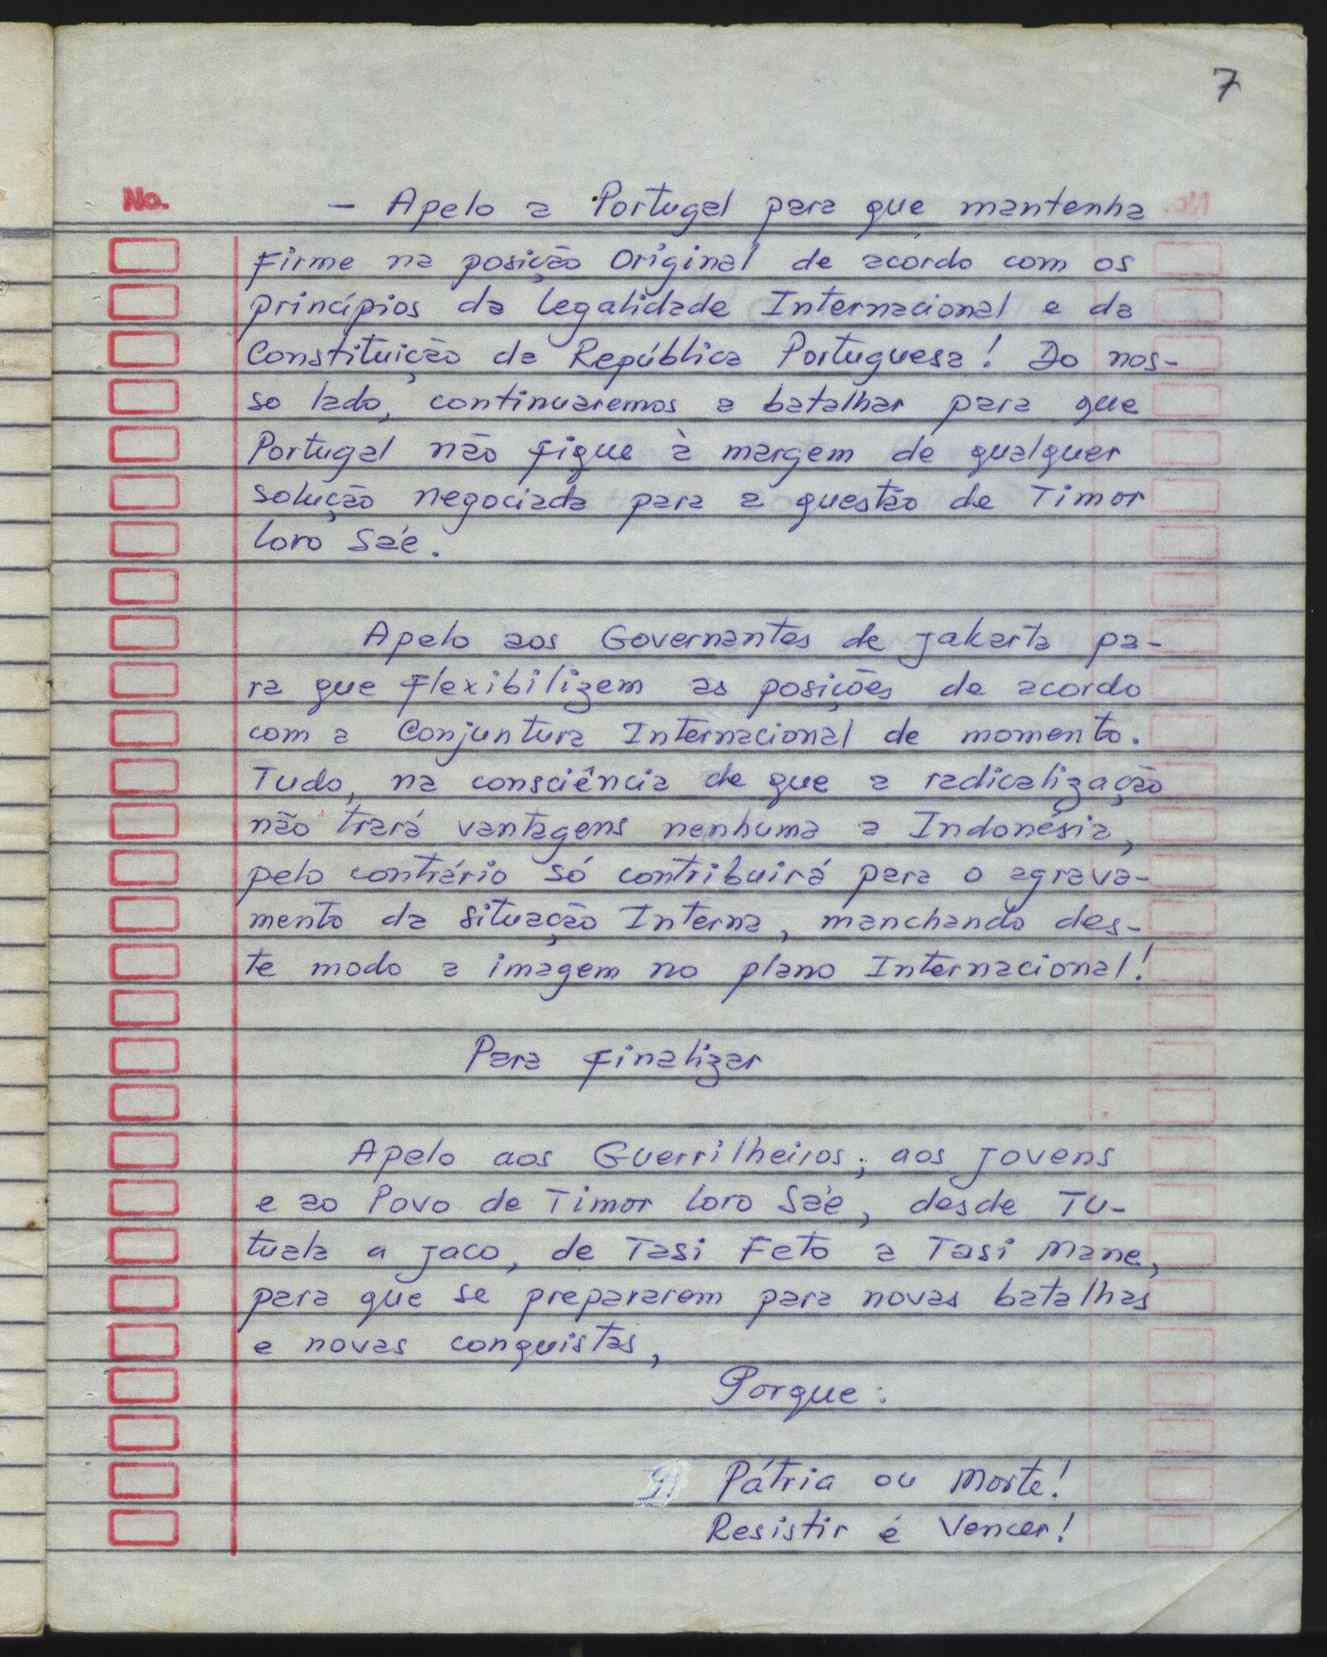 7
No.
- Apelo a Portugal para que mantenha
firme na posição Original de acordo com os
princípios da legalidade Internacional e da
Constituição da República Portuguesa! Do nos-
so lado, continuaremos a batalhar para que
Portugal não fique à margem de qualquer
solução negociada para a questão de Timor
loro Sáe.
Apelo aos Governantes de Jakarta pa-
ra que flexibilizem as posições de acordo
com a Conjuntura Internacional de momento.
Tudo, na consciência de que a radicalização
não trará vantagens nenhuma a Indonésia,
pelo contrário só contribuirá para o agrava-
mento da situação Interna, manchando des-
te modo a imagem no plano Internacional!
Para finalizar
Apelo aos Guerrilheiros; aos jovens
e ao Povo de Timor loro Sáe, desde Tu-
tuala a Jaco, de Tasi Feto a Tasi Mane,
para que se prepararem para novas batalhas
e novas conquistas,
Porque:
Pátria ou Morte!
Resistir é Vencer!